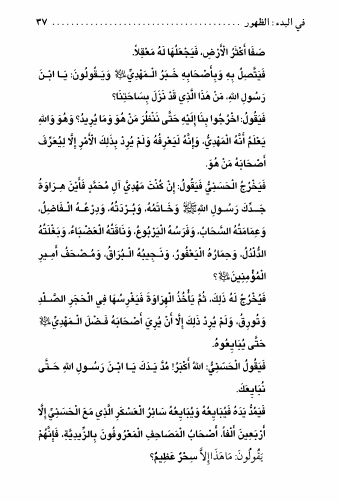 في البدء: الظهور ........................................ ٣٧
صَفَا أَكْثَرُ الْأَرْضِ، فَيَجْعَلُهَا لَهُ مَعْقِلاً.
فَيَتَّصِلُ بِهِ وَبِأَصْحَابِهِ خَبَرُ الْمَهْدِيِّ ﷺ وَيَقُولُونَ: يَا ابْنَ
رَسُولِ اللهِ، مَنْ هَذَا الَّذِي قَدْ نَزَلَ بِسَاحَتِنَا؟
فَيَقُولُ: اخْرُجُوا بِنَا إِلَيْهِ حَتَّى نَنْظُرَ مَنْ هُوَ وَمَا يُرِيدُ؟ وَهُوَ وَاللهِ
يَعْلَمُ أَنَّهُ الْمَهْدِيُّ، وَإِنَّهُ لَيَعْرِفُهُ وَلَمْ يُرِدْ بِذَلِكَ الْأَمْرِ إِلَّا لِيُعَرِّفَ
أَصْحَابَهُ مَنْ هُوَ.
فَيَخْرُجُ الْحَسَنِيُّ فَيَقُولُ: إِنْ كُنْتَ مَهْدِيَّ آلِ مُحَمَّدٍ فَأَيْنَ هِرَاوَةُ
جَدِّكَ رَسُولِ اللهِ ﷺ وَخَاتَمُهُ، وَبُرْدَتُهُ، وَدِرْعُهُ الْفَاضِلُ،
وَعِمَامَتُهُ السَّحَابُ، وَفَرَسُهُ الْيَرْبُوعُ، وَنَاقَتُهُ الْعَضْبَاءُ، وَبَغْلَتُهُ
الدُّلْدُلُ، وَحِمَارُهُ الْيَعْفُورُ، وَنَجِيبُهُ الْبُرَاقُ، وَمُصْحَفُ أَمِيرِ
الْمُؤْمِنِينَ ﷺ؟
فَيُخْرِجُ لَهُ ذَلِكَ، ثُمَّ يَأْخُذُ الْهِرَاوَةَ فَيَغْرِسُهَا فِي الْحَجَرِ الصَّلْدِ
وَتُورِقُ، وَلَمْ يُرِدْ ذَلِكَ إِلَّا أَنْ يُرِيَ أَصْحَابَهُ فَضْلَ الْمَهْدِيِّ ﷺ
حَتَّى يُبَايِعُوهُ.
فَيَقُولُ الْحَسَنِيُّ: اللهُ أَكْبَرُ! مُدَّ يَدَكَ يَا ابْنَ رَسُولِ اللهِ حَتَّى
نُبَايِعَكَ.
فَيَمُدُّ يَدَهُ فَيُبَايِعُهُ وَيُبَايِعُهُ سَائِرُ الْعَسْكَرِ الَّذِي مَعَ الْحَسَنِيِّ إِلَّا
أَرْبَعِينَ أَلْفاً، أَصْحَابُ الْمَصَاحِفِ الْمَعْرُوفُونَ بِالزِّيدِيَّةِ، فَإِنَّهُمْ
يَقُولُونَ: مَا هَذَا إِلَّا سِحْرٌ عَظِيمٌ؟